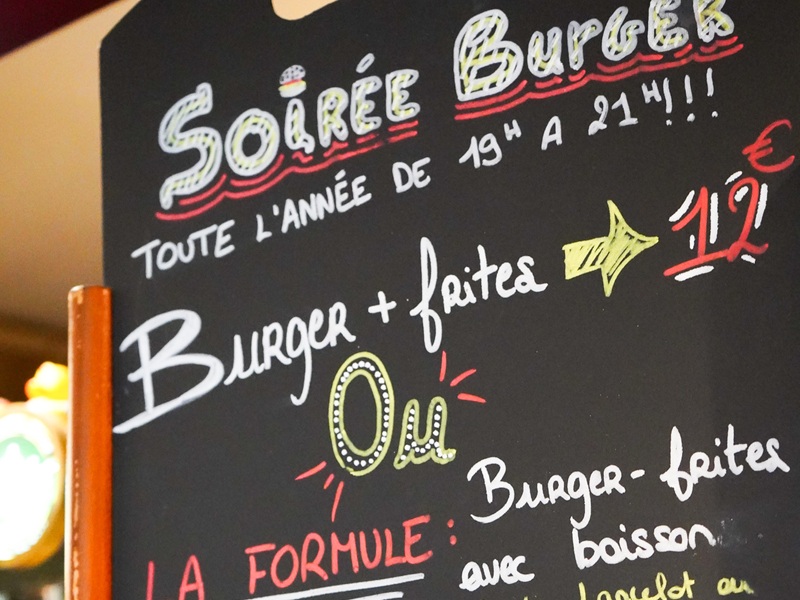 SOIRÉE BURGER
TOUTE L'ANNÉE DE 19H A 21H!!!
BURGER + frites → 12€
Ou
LA FORMULE : BURGER-frites
avec boisson